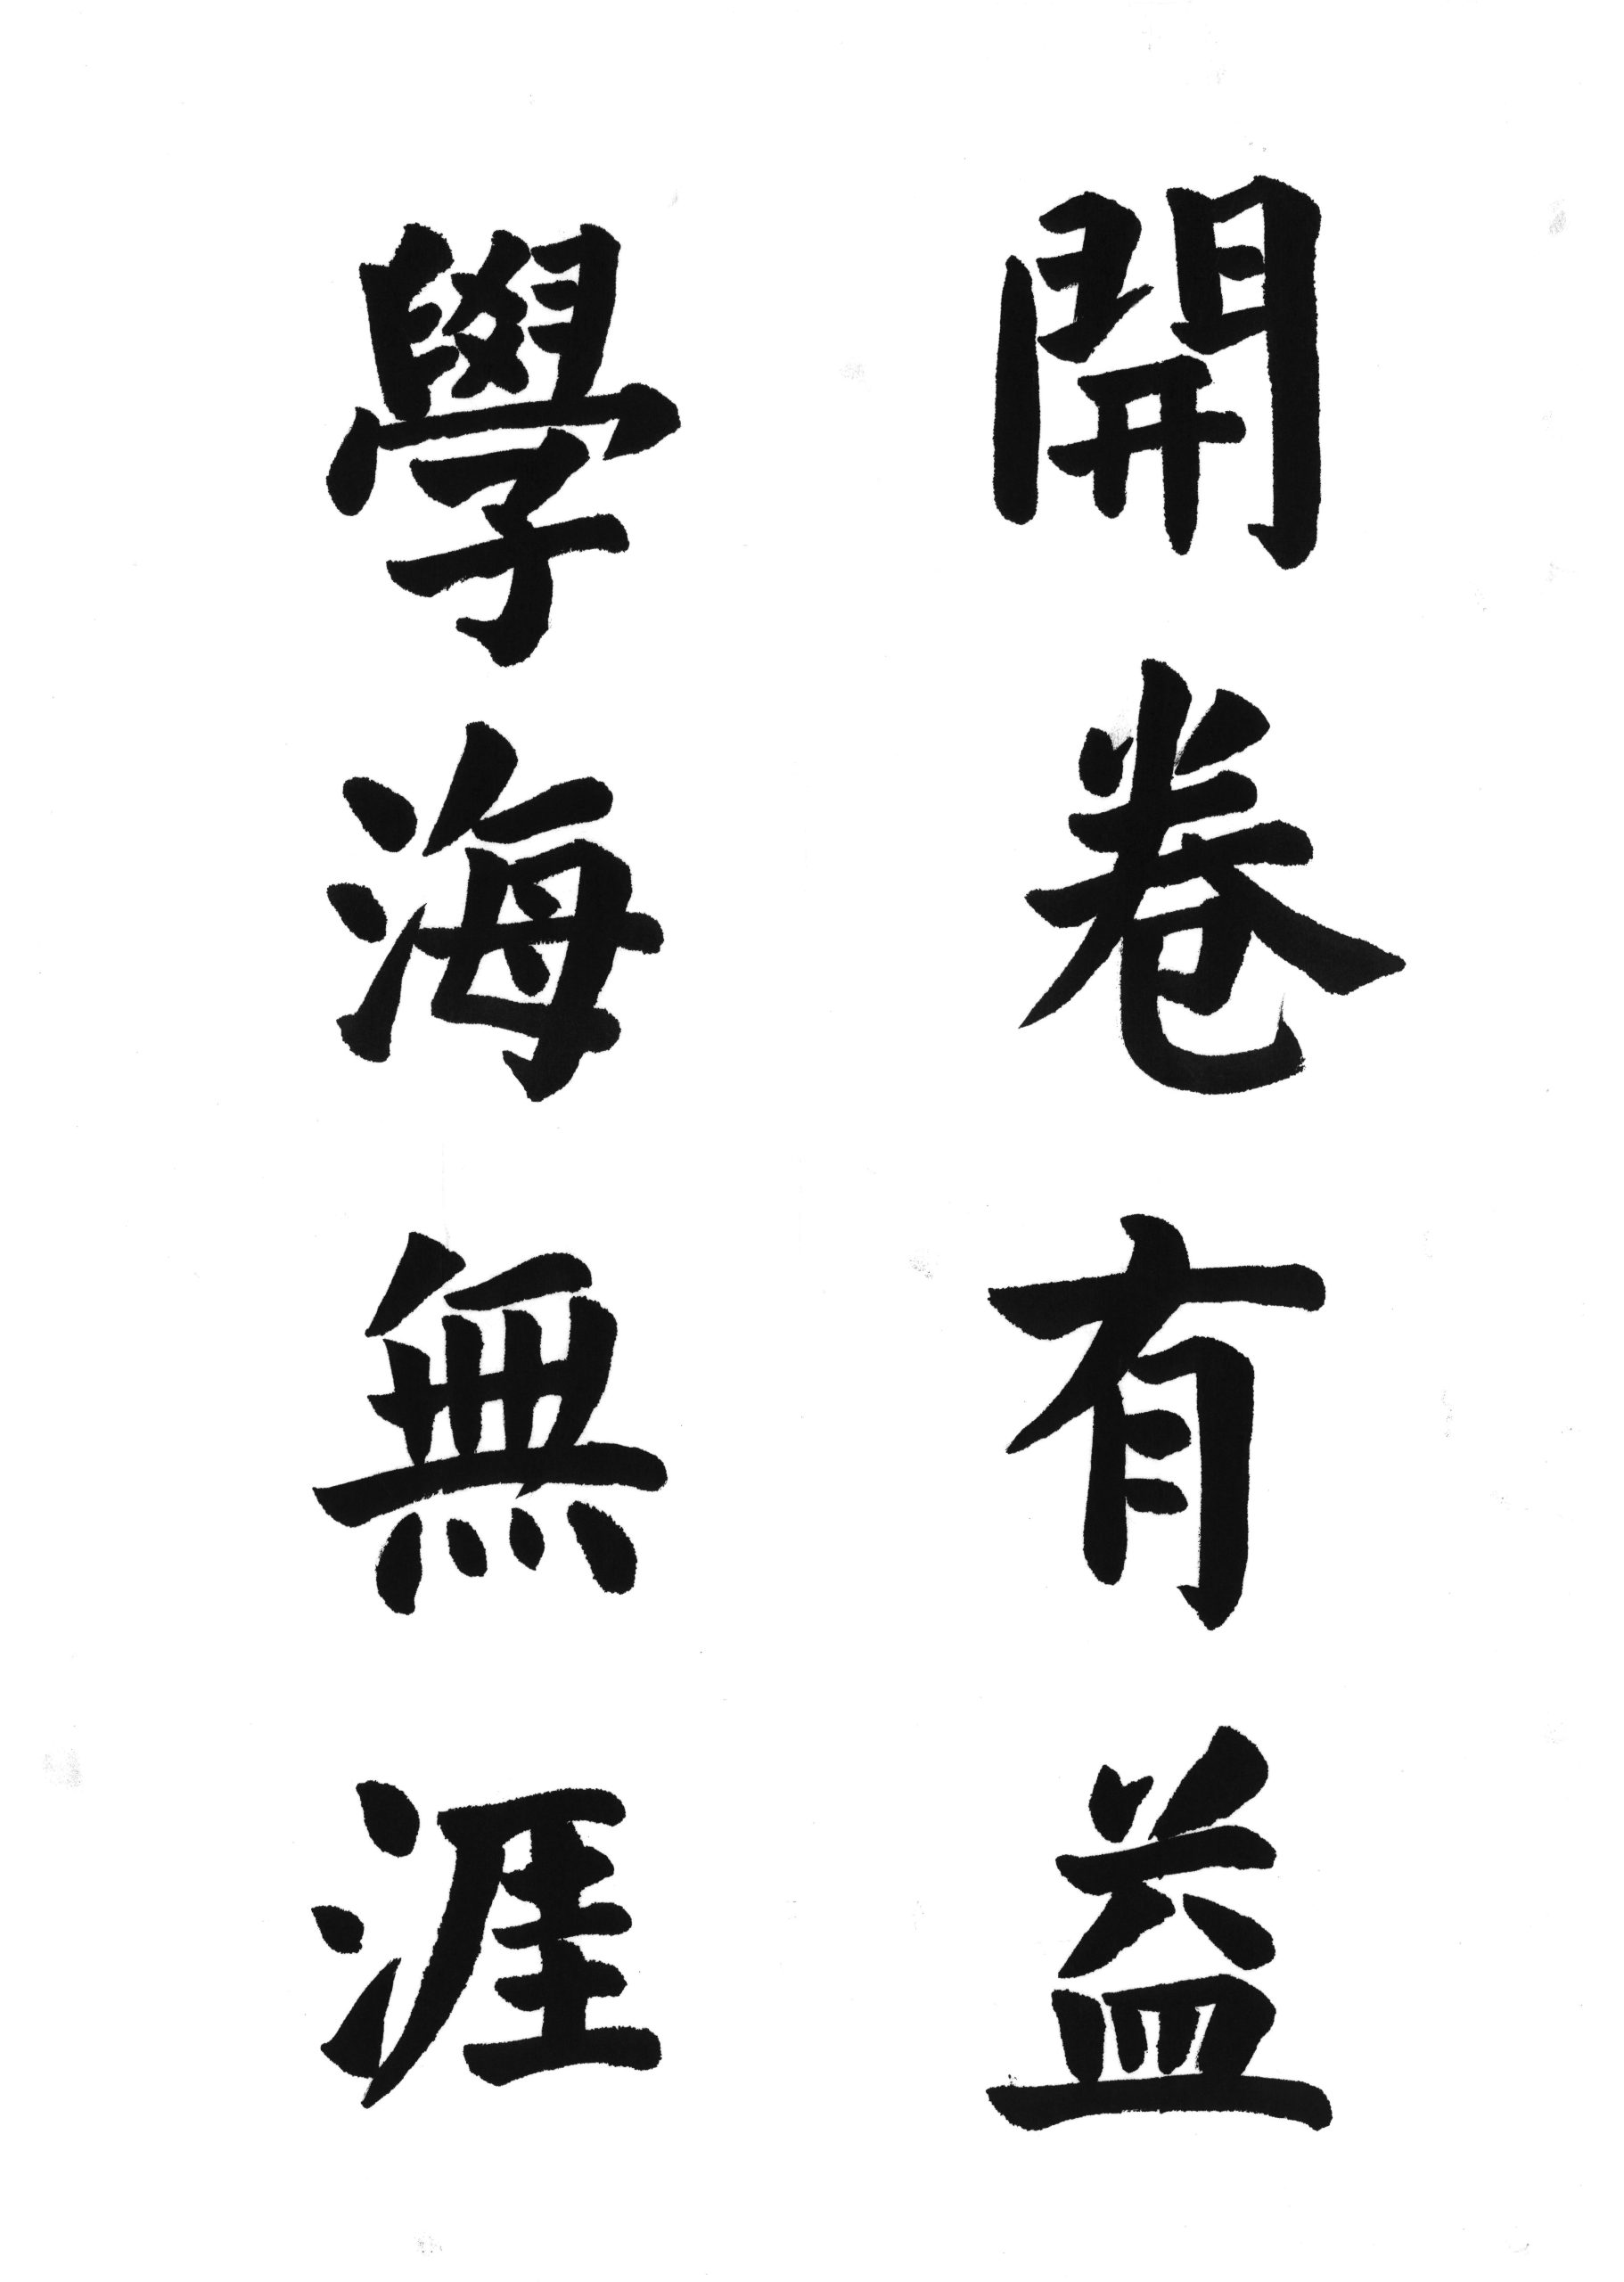 開卷有益
學海無涯